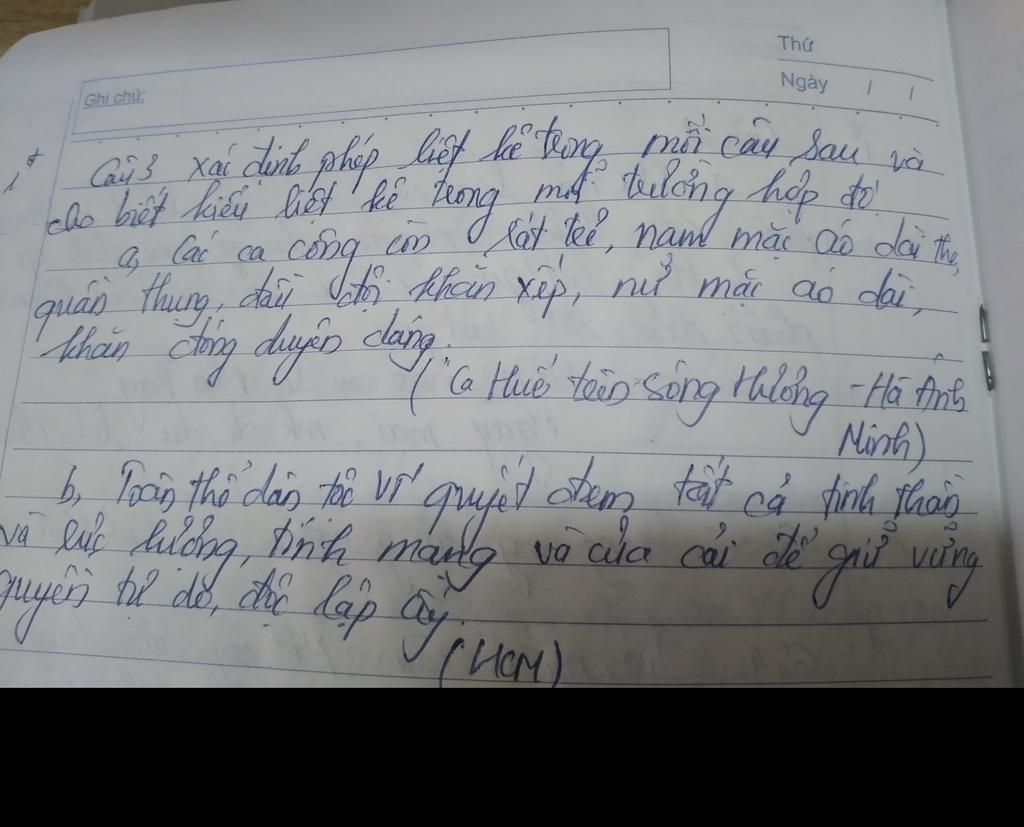 Thứ
Ngày / /
Ghi chú:
Câu 3 Xác định phép liệt kê trong mỗi câu sau và
cho biết kiểu liệt kê trong mỗi trường hợp đó.
a, Các ca công còn rất trẻ, nam mặc áo dài the,
quần thụng, đầu đội khăn xếp, nữ mặc áo dài,
khăn đóng duyên dáng.
("Ca Huế trên sông Hương - Hà Ánh
Minh)
b, Toàn thể dân tộc VN quyết đem tất cả tinh thần
và lực lượng, tính mạng và của cải để giữ vững
quyền tự do, độc lập ấy.
(HCM)